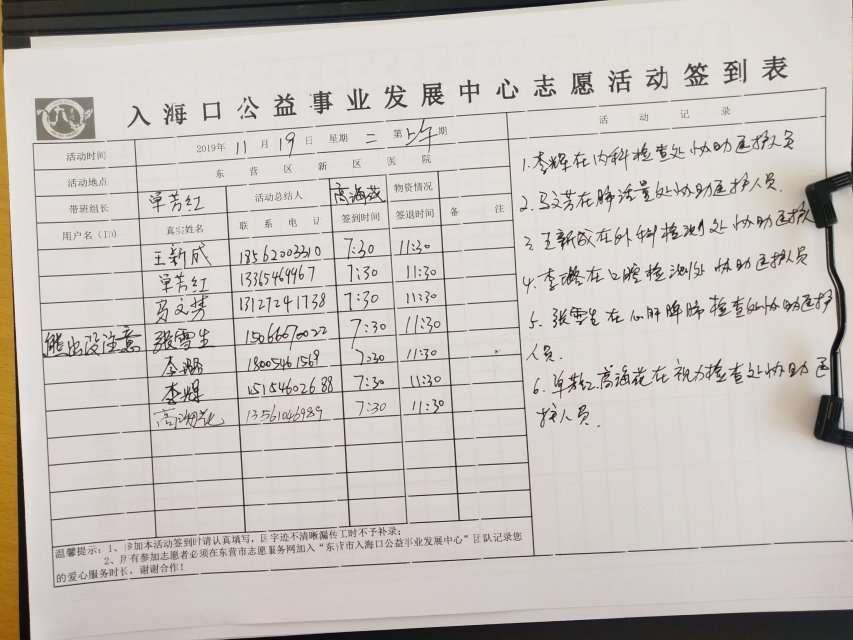 入海口公益事业发展中心志愿活动签到表
活动时间 2019年 11 月 19 日 星期 二 第 上午 期
活动记录
活动地点 东营区新区医院
带班组长 单芳红 活动总结人 高海花 物资情况
用户名（ID） 真实姓名 联系电话 签到时间 签退时间 备注
王新成 18562003310 7:30 11:30
单芳红 13365469967 7:30 11:30
马文芳 13127241738 7:30 11:30
熊出没注意 张雪生 15066670022 7:30 11:30
李璐 18005461569 7:30 11:30
李辉 15154602688 7:30 11:30
高海花 13561046989 7:30 11:30
1.李辉在内科检查处协助医护人员
2.马文芳在肺活量处协助医护人员.
3.王新成在外科检测处协助医护人
4.李璐在口腔检测处协助医护人员
5.张雪生在心肝脾肺检查处协助医护
人员.
6.单芳红.高海花在视力检查处协助医
护人员.
温馨提示：1、参加本活动签到时请认真填写，因字迹不清晰漏传工时不予补录；
2、所有参加志愿者必须在东营市志愿服务网加入“东营市入海口公益事业发展中心”团队记录您
的爱心服务时长，谢谢合作！